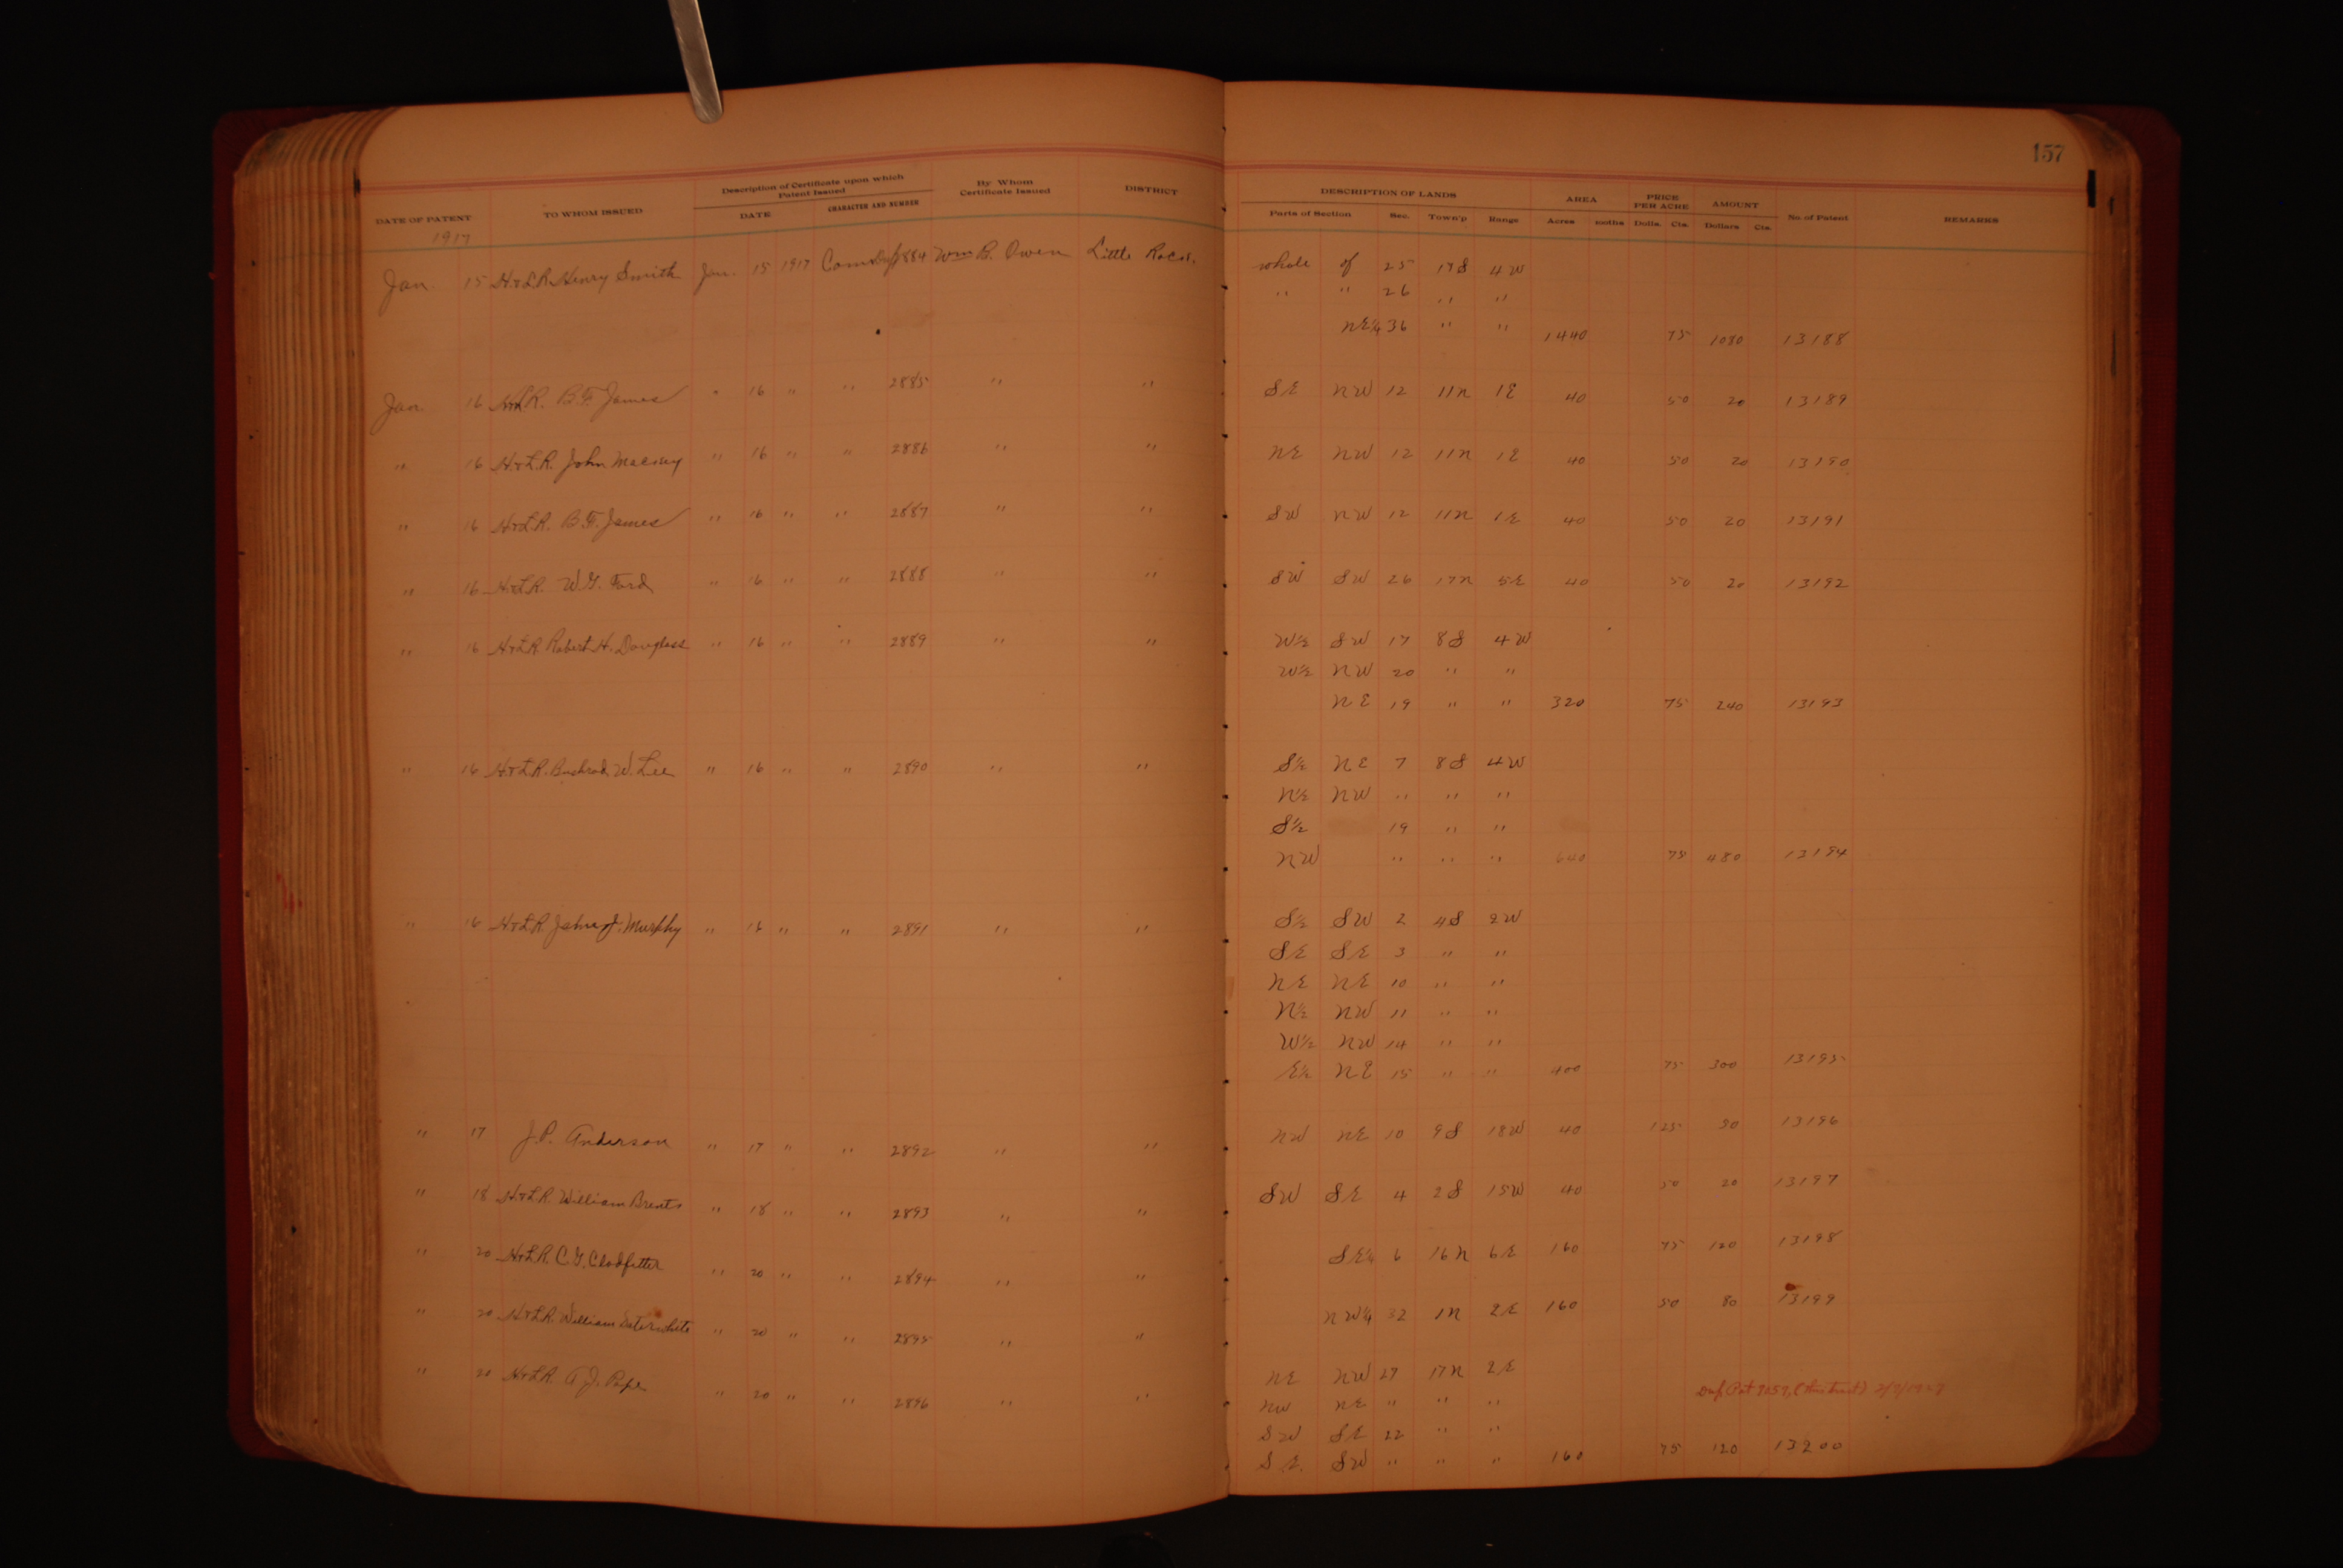 157
DATE OF PATENT TO WHOM ISSUED Description of Certificate upon which Patent Issued DATE CHARACTER AND NUMBER By Whom Certificate Issued DISTRICT DESCRIPTION OF LANDS Parts of Section Sec. Town'p Range AREA Acres PRICE PER ACRE Dolls. Cts. AMOUNT Dollars Cts. No. of Patent REMARKS
1917
Jan. 15 H&L.R. Henry Smith Jan. 15 1917 2884 Wm B. Owen Little Rock. whole of 25 17S 4W
" " 26 " "
NE¼ 36 " " 1440 75 1080 13188
Jan. 16 B.F. James " 16 " " 2885 " " SE NW 12 11N 1E 40 50 20 13189
" 16 H&L.R. John " 16 " " 2886 " " NE NW 12 11N 1E 40 50 20 13190
" 16 H&L.R. B.F. James " 16 " " 2887 " " SW NW 12 11N 1E 40 50 20 13191
" 16 H&L.R. W.G. Ford " 16 " " 2888 " " SW SW 26 17N 5E 40 50 20 13192
" 16 H&L.R. Robert H. Douglass " 16 " " 2889 " " W½ SW 17 8S 4W
W½ NW 20 " "
NE 19 " " 320 75 240 13193
" 16 H&L.R. Bushrod W. Lee " 16 " " 2890 " " S½ NE 7 8S 4W
N½ NW " " "
S½ 19 " "
NW " " " 640 75 480 13194
" 16 H&L.R. J. Murphy " 16 " " 2891 " " S½ SW 2 4S 2W
SE SE 3 " "
NE NE 10 " "
N½ NW 11 " "
W½ NW 14 " "
E½ NE 15 " " 400 75 300 13195
" 17 J.P. Anderson " 17 " " 2892 " " NW NE 10 9S 18W 40 125 50 13196
" 18 H&L.R. William Brents " 18 " " 2893 " " SW SE 4 2S 15W 40 50 20 13197
" 20 H&L.R. C.G. Clodfetter " 20 " " 2894 " " SE¼ 6 16N 6E 160 75 120 13198
" 20 H&L.R. William Saterwhite " 20 " " 2895 " " NW¼ 32 1N 2E 160 50 80 13199
" 20 H&L.R. A.J. Pope " 20 " " 2896 " " NE NW 27 17N 2E
NW NE " " "
SW SE 22 " "
SE SW " " " 160 75 120 13200